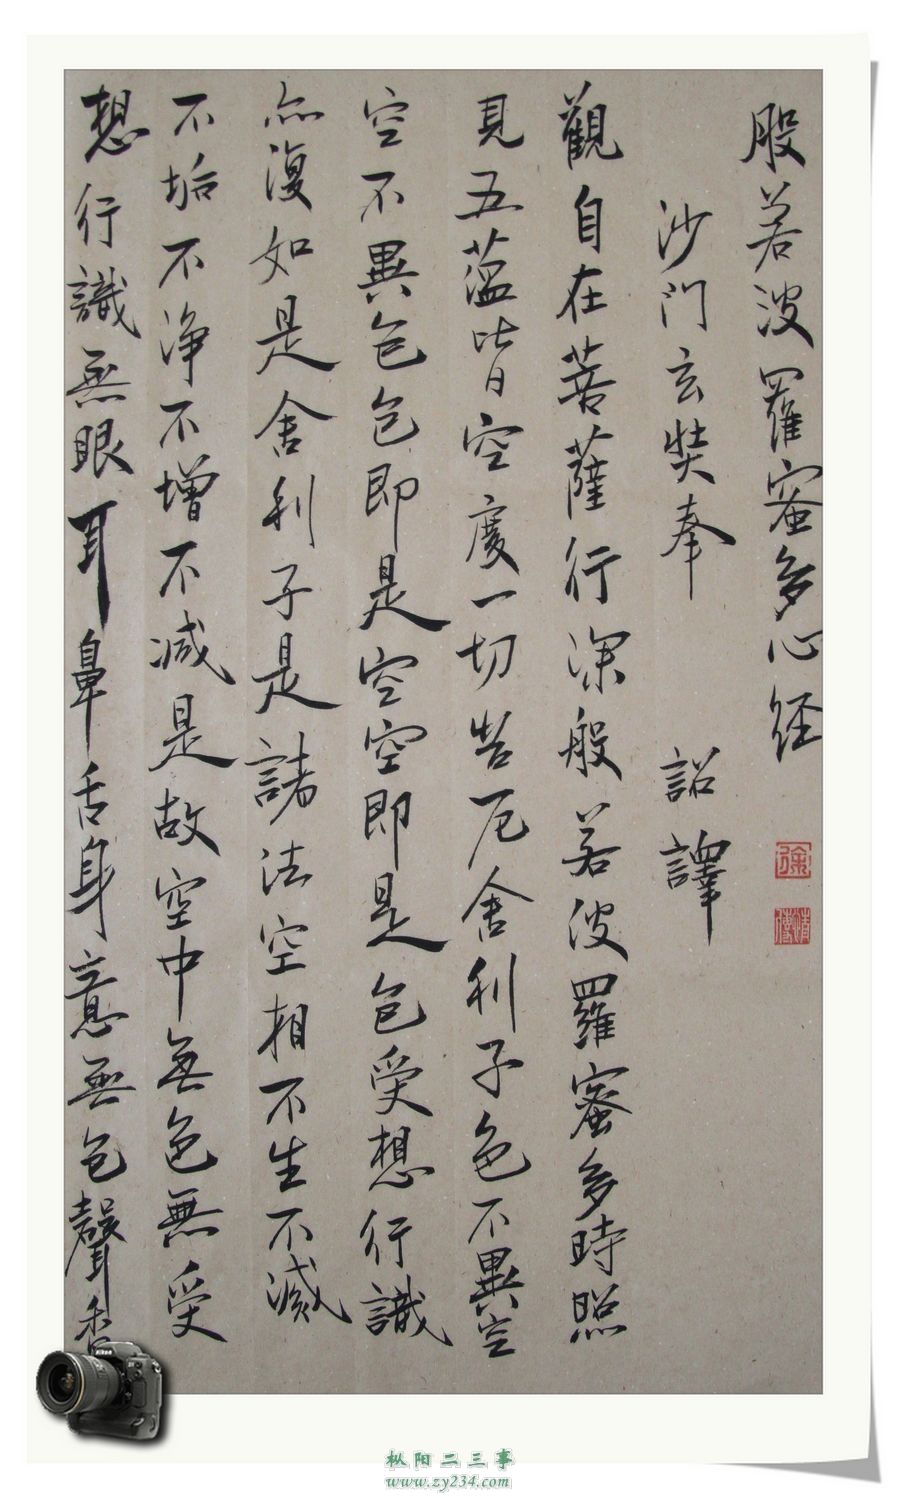 般若波羅蜜多心経
沙門玄奘奉 詔譯
觀自在菩薩行深般若波羅蜜多時照
見五蘊皆空度一切苦厄舍利子色不異空
空不異色色即是空空即是色受想行識
亦復如是舍利子是諸法空相不生不滅
不垢不淨不增不減是故空中無色無受
想行識無眼耳鼻舌身意無色聲香
枞阳二三事
www.zy234.com